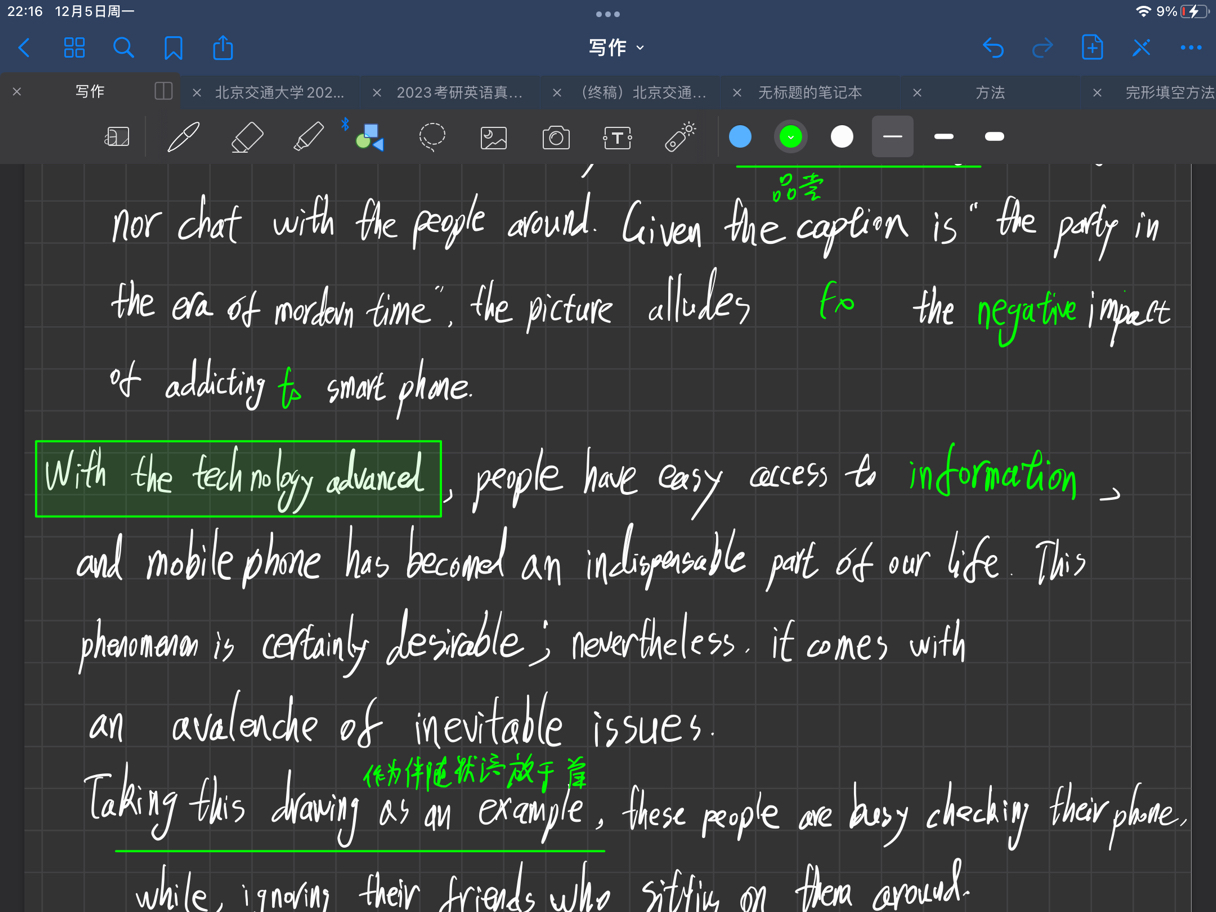 22:16 12月5日周一
9%
写作
写作
北京交通大学202...
2023考研英语真...
（终稿）北京交通...
无标题的笔记本
方法
完形填空方法
T
nor chat with the people around. Given the caption is “ the party in
the era of mordern time”, the picture alludes to the negative impact
of addicting to smart phone.
With the technology advanced, people have easy access to information,
and mobile phone has becomed an indispensable part of our life. This
phenomenon is certainly desirable; nevertheless. it comes with
an avalenche of inevitable issues.
作为伴随状语放于首
Taking this drawing as an example, these people are busy checking their phone,
while, ignoring their friends who sitting on them around.